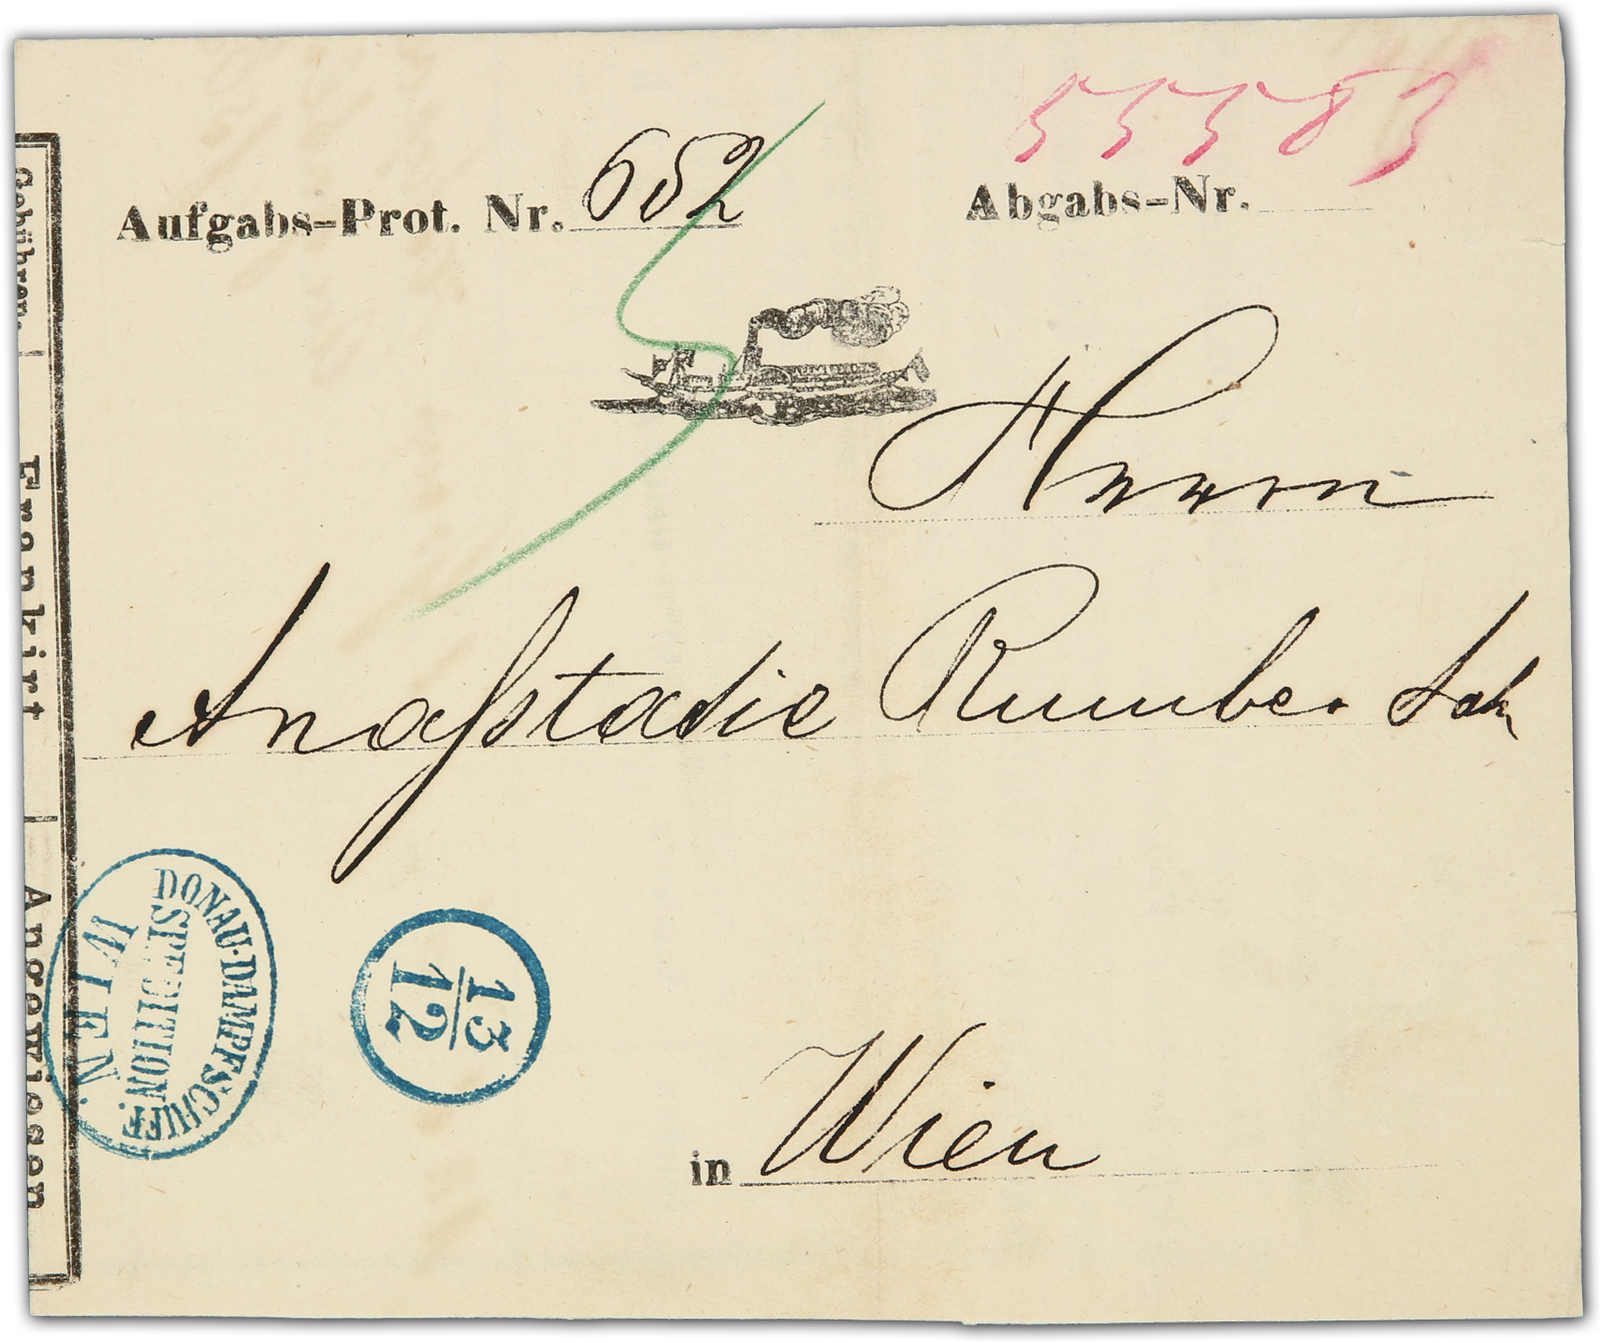 55583
Aufgabs-Prot. Nr. 652
Abgabs-Nr.
Herrn
Anastadie Rumbe
in Wien
Gebühren.
Frankirt
Angewiesen
DONAU-DAMPFSCHIFF.
SPEDITION.
WIEN.
13
12